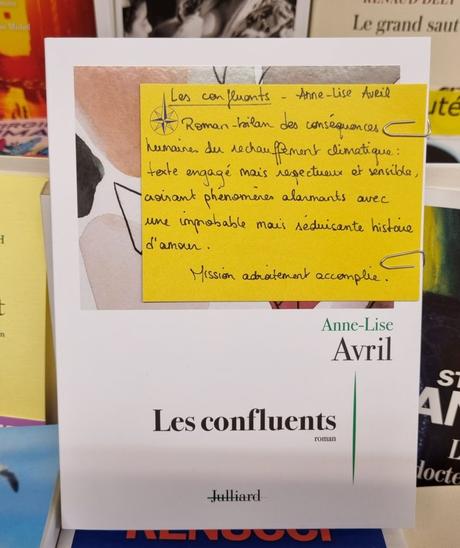 RENAUD DELY
Le grand saut
uté
Les confluents - Anne-Lise Avril
Roman-bilan des conséquences
humaines du réchauffement climatique :
texte engagé mais respectueux et sensible,
croisant phénomènes alarmants avec
une improbable mais séduisante histoire
d'amour.
Mission adroitement accomplie.
Anne-Lise
Avril
Les confluents
roman
Julliard
ST
AN
L
docte
RENUCCI